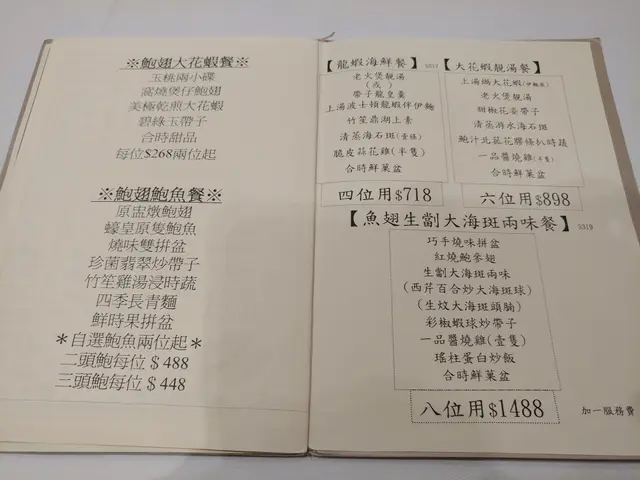 ※鮑翅大花蝦餐※
玉桃兩小碟
窩燒煲仔鮑翅
美極乾煎大花蝦
碧綠玉帶子
合時甜品
每位$268兩位起
※鮑翅鮑魚餐※
原盅燉鮑翅
蠔皇原隻鮑魚
燒味雙拼盆
珍菌翡翠炒帶子
竹笙雞湯浸時蔬
四季長青麵
鮮時果拼盆
＊自選鮑魚兩位起＊
二頭鮑每位 $ 488
三頭鮑每位 $ 448
【龍蝦海鮮餐】
老火煲靚湯
(或)
帶子龍皇羹
上湯波士頓龍蝦伴伊麵
竹笙鼎湖上素
清蒸海石斑(壹條)
脆皮蒜花雞(半隻)
合時鮮菓盆
四位用$718
【大花蝦靚湯餐】
上湯焗大花蝦(伊麵底)
老火煲靚湯
甜椒花姿帶子
清蒸游水海石斑
鮑汁北菇花膠條扒時蔬
一品醬燒雞(半隻)
合時鮮菓盆
六位用$898
【魚翅生劏大海斑兩味餐】 3319
巧手燒味拼盆
紅燒鮑參翅
生劏大海斑兩味
(西芹百合炒大海斑球)
(生炆大海斑頭腩)
彩椒蝦球炒帶子
一品醬燒雞(壹隻)
瑤柱蛋白炒飯
合時鮮菓盆
八位用$1488
加一服務費